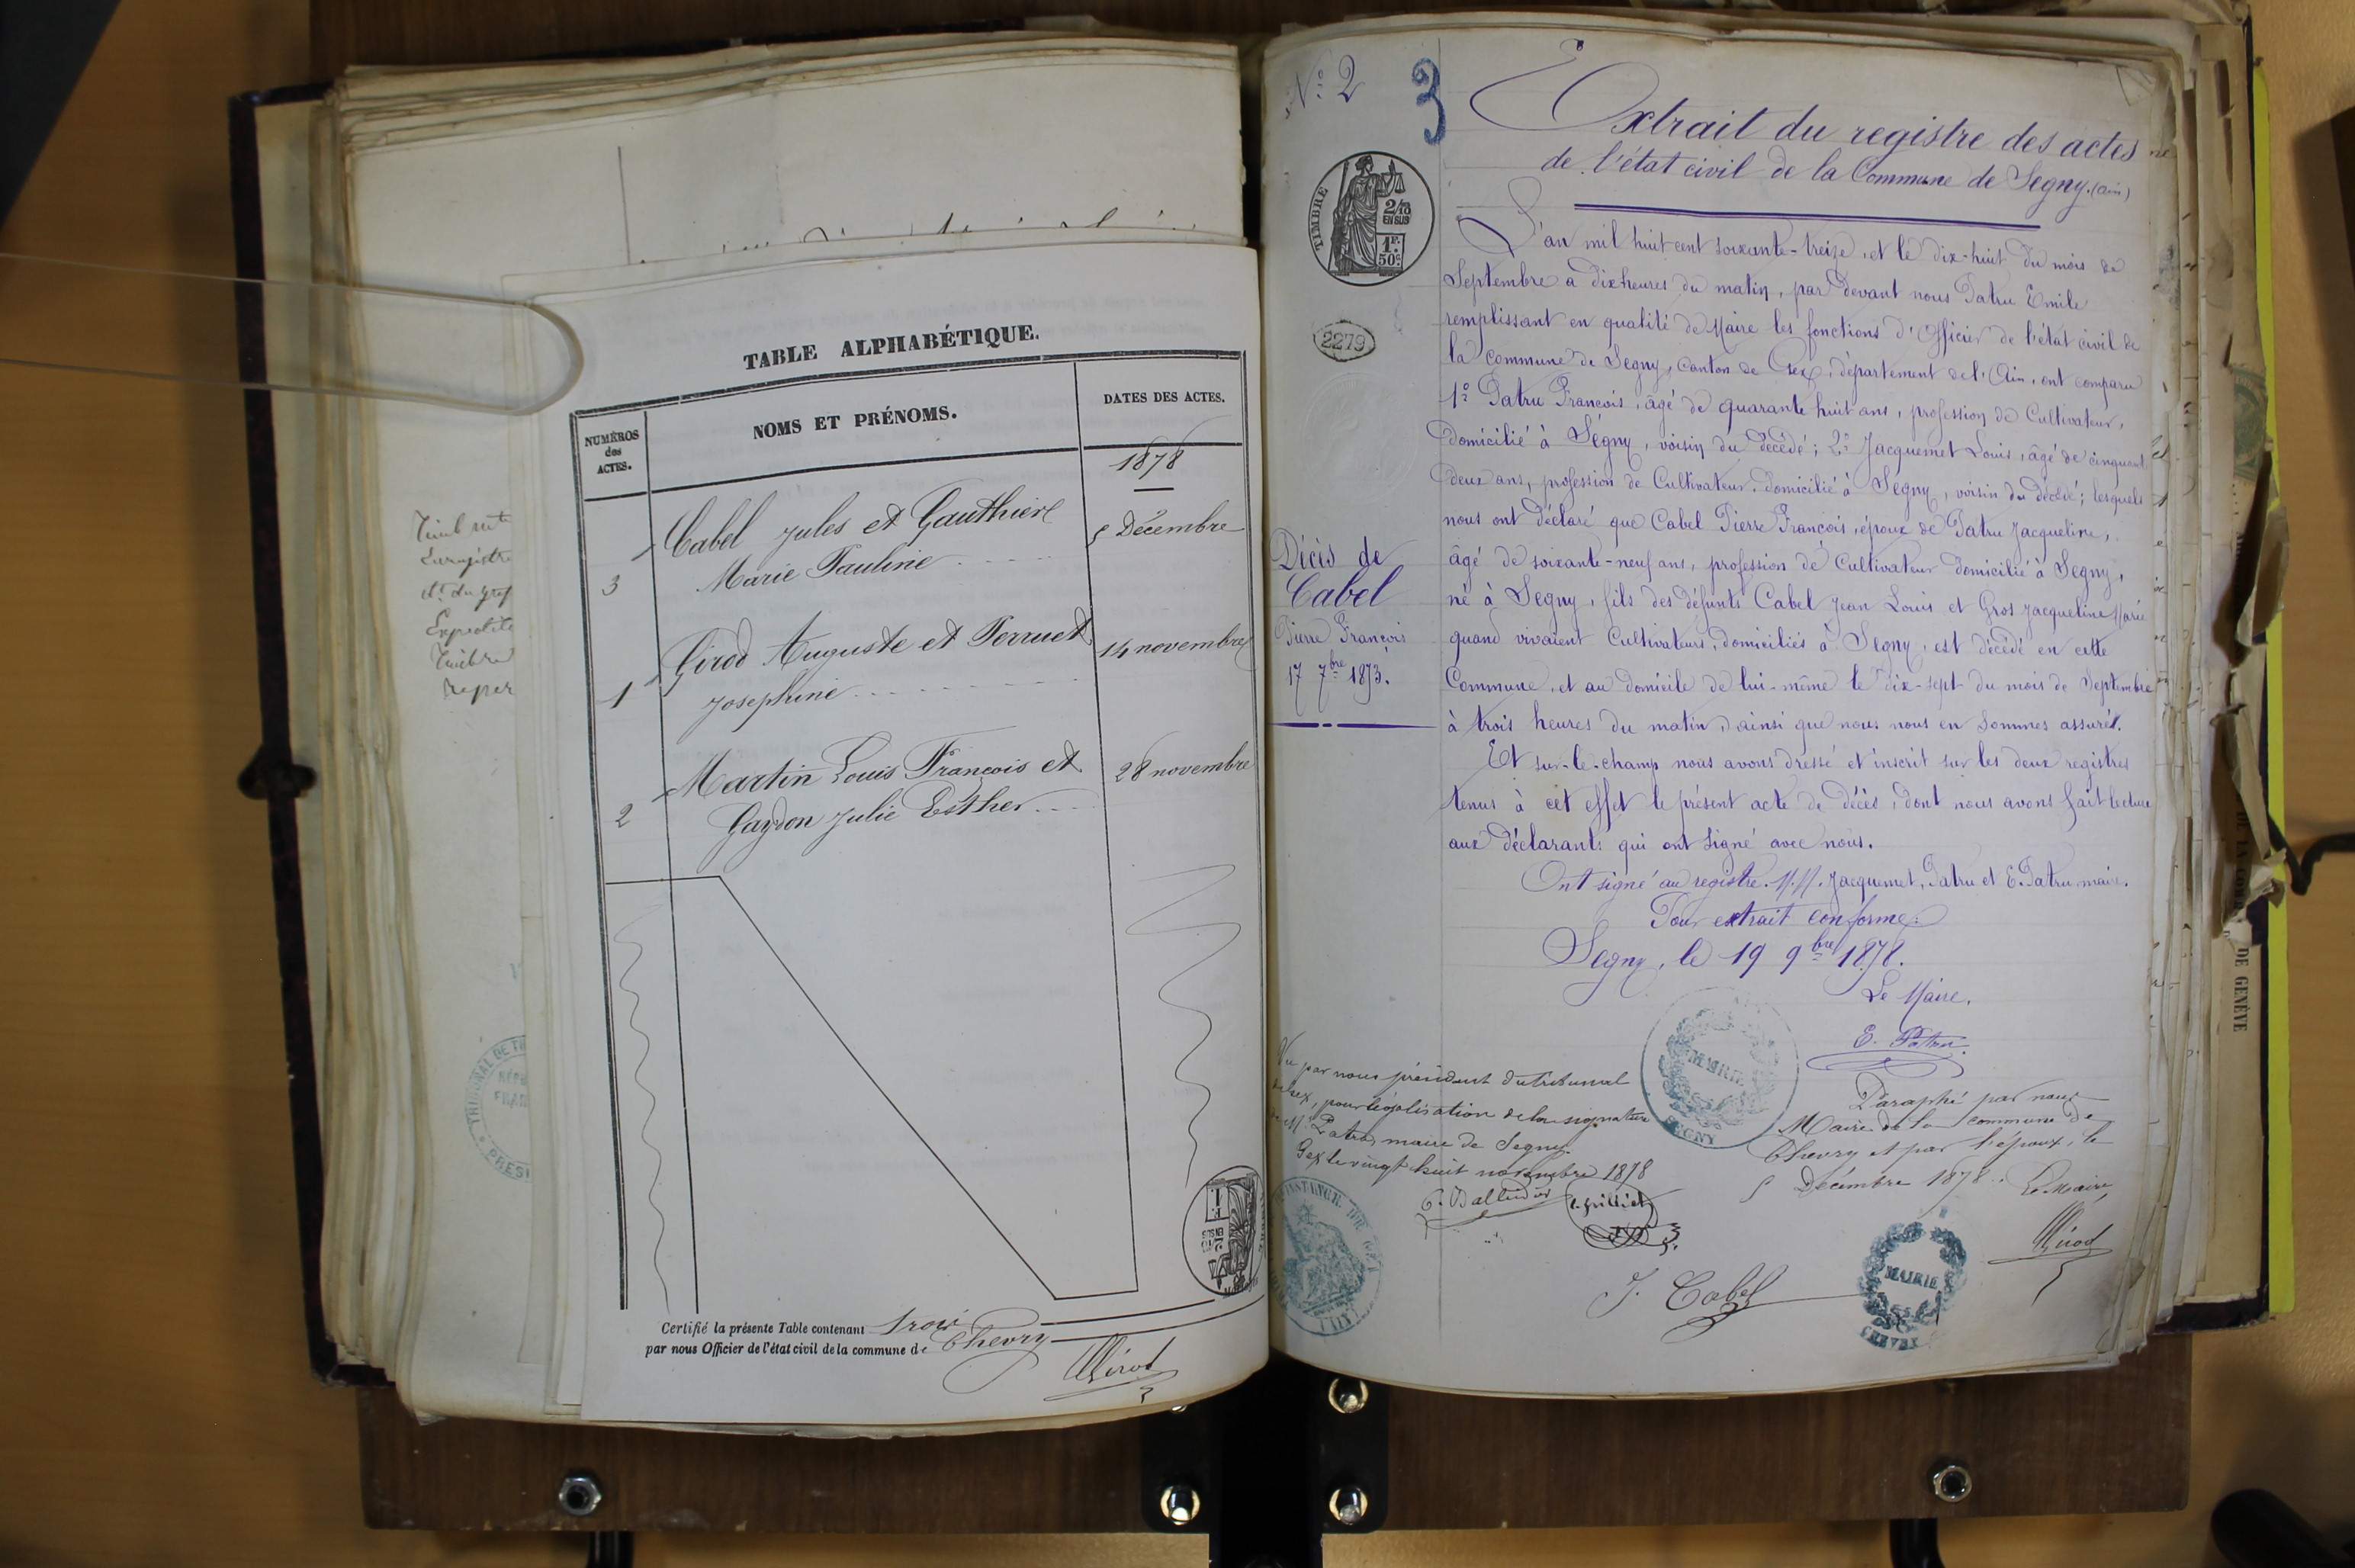 TABLE ALPHABÉTIQUE.
NUMÉROS
des
ACTES.
NOMS ET PRÉNOMS.
DATES DES ACTES.
1878
Cabel Jules et Gauthier
5 Décembre
3
Marie Pauline
Girod Auguste et Perruet
14 novembre
1
Josephine
Martin Louis François et
28 novembre
2
Gaydon Julie Esther
Certifié la présente Table contenant trois
par nous Officier de l'état civil de la commune de Chevry
Girod
N° 2
3
Extrait du registre des actes
de l'état civil de la Commune de Segny. (Ain)
TIMBRE
2/10
EN SUS
1F.
50c.
2279
L'an mil huit cent soixante-treize, et le dix-huit du mois de
Septembre à dix heures du matin, par devant nous Patru Emile
remplissant en qualité de Maire les fonctions d'Officier de l'état civil de
la commune de Segny, canton de Gex, département de l'Ain, ont comparu
1° Patru François, âgé de quarante huit ans, profession de Cultivateur,
domicilié à Segny, voisin du décédé; 2° Jacquemet Louis, âgé de cinquante
deux ans, profession de Cultivateur, domicilié à Segny, voisin du décédé; lesquels
nous ont déclaré que Cabel Pierre François, époux de Patru Jacqueline,
âgé de soixante-neuf ans, profession de Cultivateur domicilié à Segny,
né à Segny, fils des défunts Cabel Jean Louis et Gros Jacqueline Marie
quand vivaient Cultivateurs, domiciliés à Segny, est décédé en cette
Commune, et au domicile de lui-même le dix-sept du mois de Septembre
à trois heures du matin, ainsi que nous nous en sommes assurés.
Et sur-le-champ nous avons dressé et inscrit sur les deux registres
tenus à cet effet le présent acte de décès, dont nous avons fait lecture
aux déclarants qui ont signé avec nous.
Ont signé au registre. M.M. Jacquemet, Patru et E. Patru maire.
Pour extrait conforme.
Segny, le 19 9bre 1878.
Le Maire,
E. Patru.
Décès de
Cabel
Pierre François
17 7bre 1873.
MAIRIE
SEGNY
Vu par nous président du tribunal
de Gex, pour légalisation de la signature
de M. Patru, maire de Segny.
Gex le vingt huit novembre 1878
Paraphé par nous
Maire de la commune de
Chevry et par l'époux, le
5 Décembre 1878. Le Maire,
Girod
J. Cabel
MAIRIE
CHEVRY
DE GENÈVE